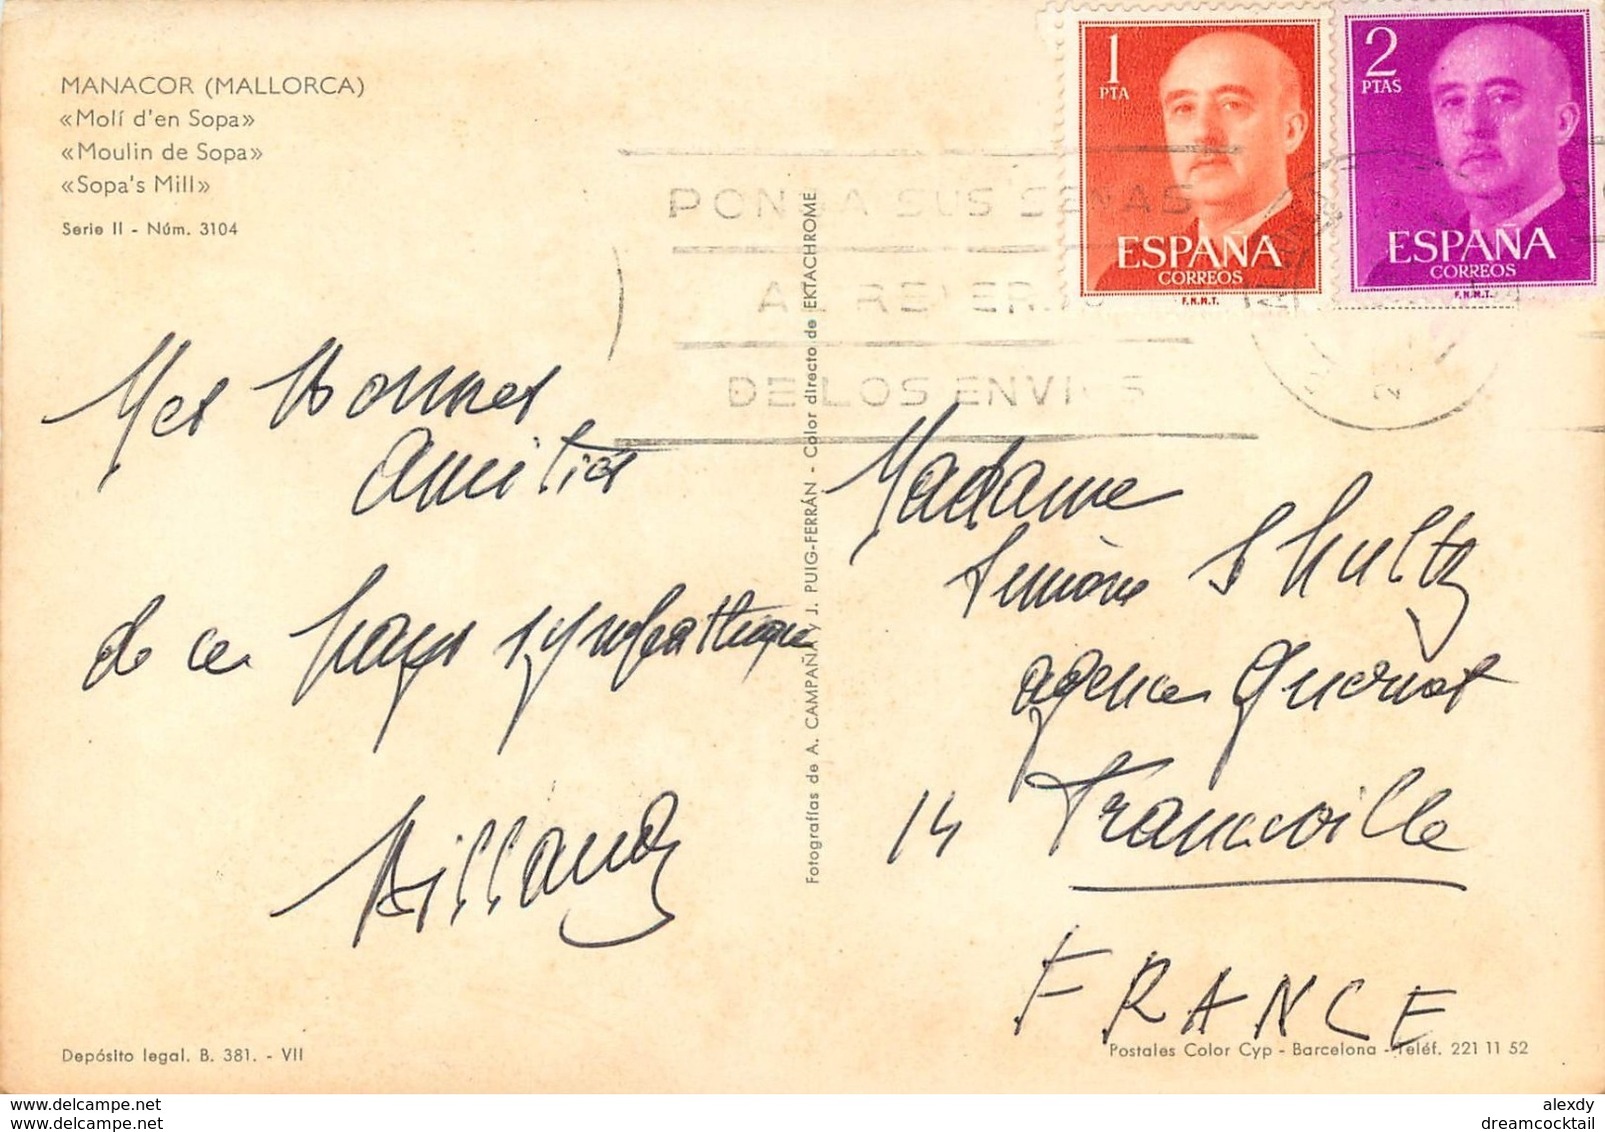 MANACOR (MALLORCA)
«Molí d'en Sopa»
«Moulin de Sopa»
«Sopa's Mill»
Serie II - Núm. 3104
1
PTA
ESPAÑA
CORREOS
F.N.M.T.
2
PTAS
ESPAÑA
CORREOS
F.N.M.T.
PONGA SUS SEÑAS
AL REVERSO
DE LOS ENVIOS
Mes bonnes
amitiés
de ce pays sympathique
Fotografías de A. CAMPAÑÁ y J. PUIG-FERRÁN - Color directo de EKTACHROME
Madame
Simone Shultz
agence
14 Francville
FRANCE
Depósito legal. B. 381. - VII
Postales Color Cyp - Barcelona - Teléf. 221 11 52
www.delcampe.net
alexdy
www.delcampe.net
dreamcocktail